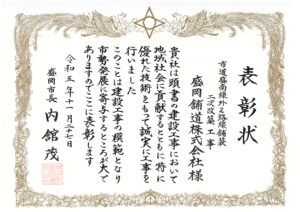 表彰状
市道盛南線外三路線舗装
二次改築工事
盛岡舗道株式会社様
貴社は頭書の建設工事において
地域社会に貢献するとともに特に
優れた技術をもって誠実に工事を
行いました
このことは建設工事の模範となり
市勢発展に寄与するところが大で
ありますのでここに表彰します
令和五年十一月二十七日
盛岡市長 内舘茂